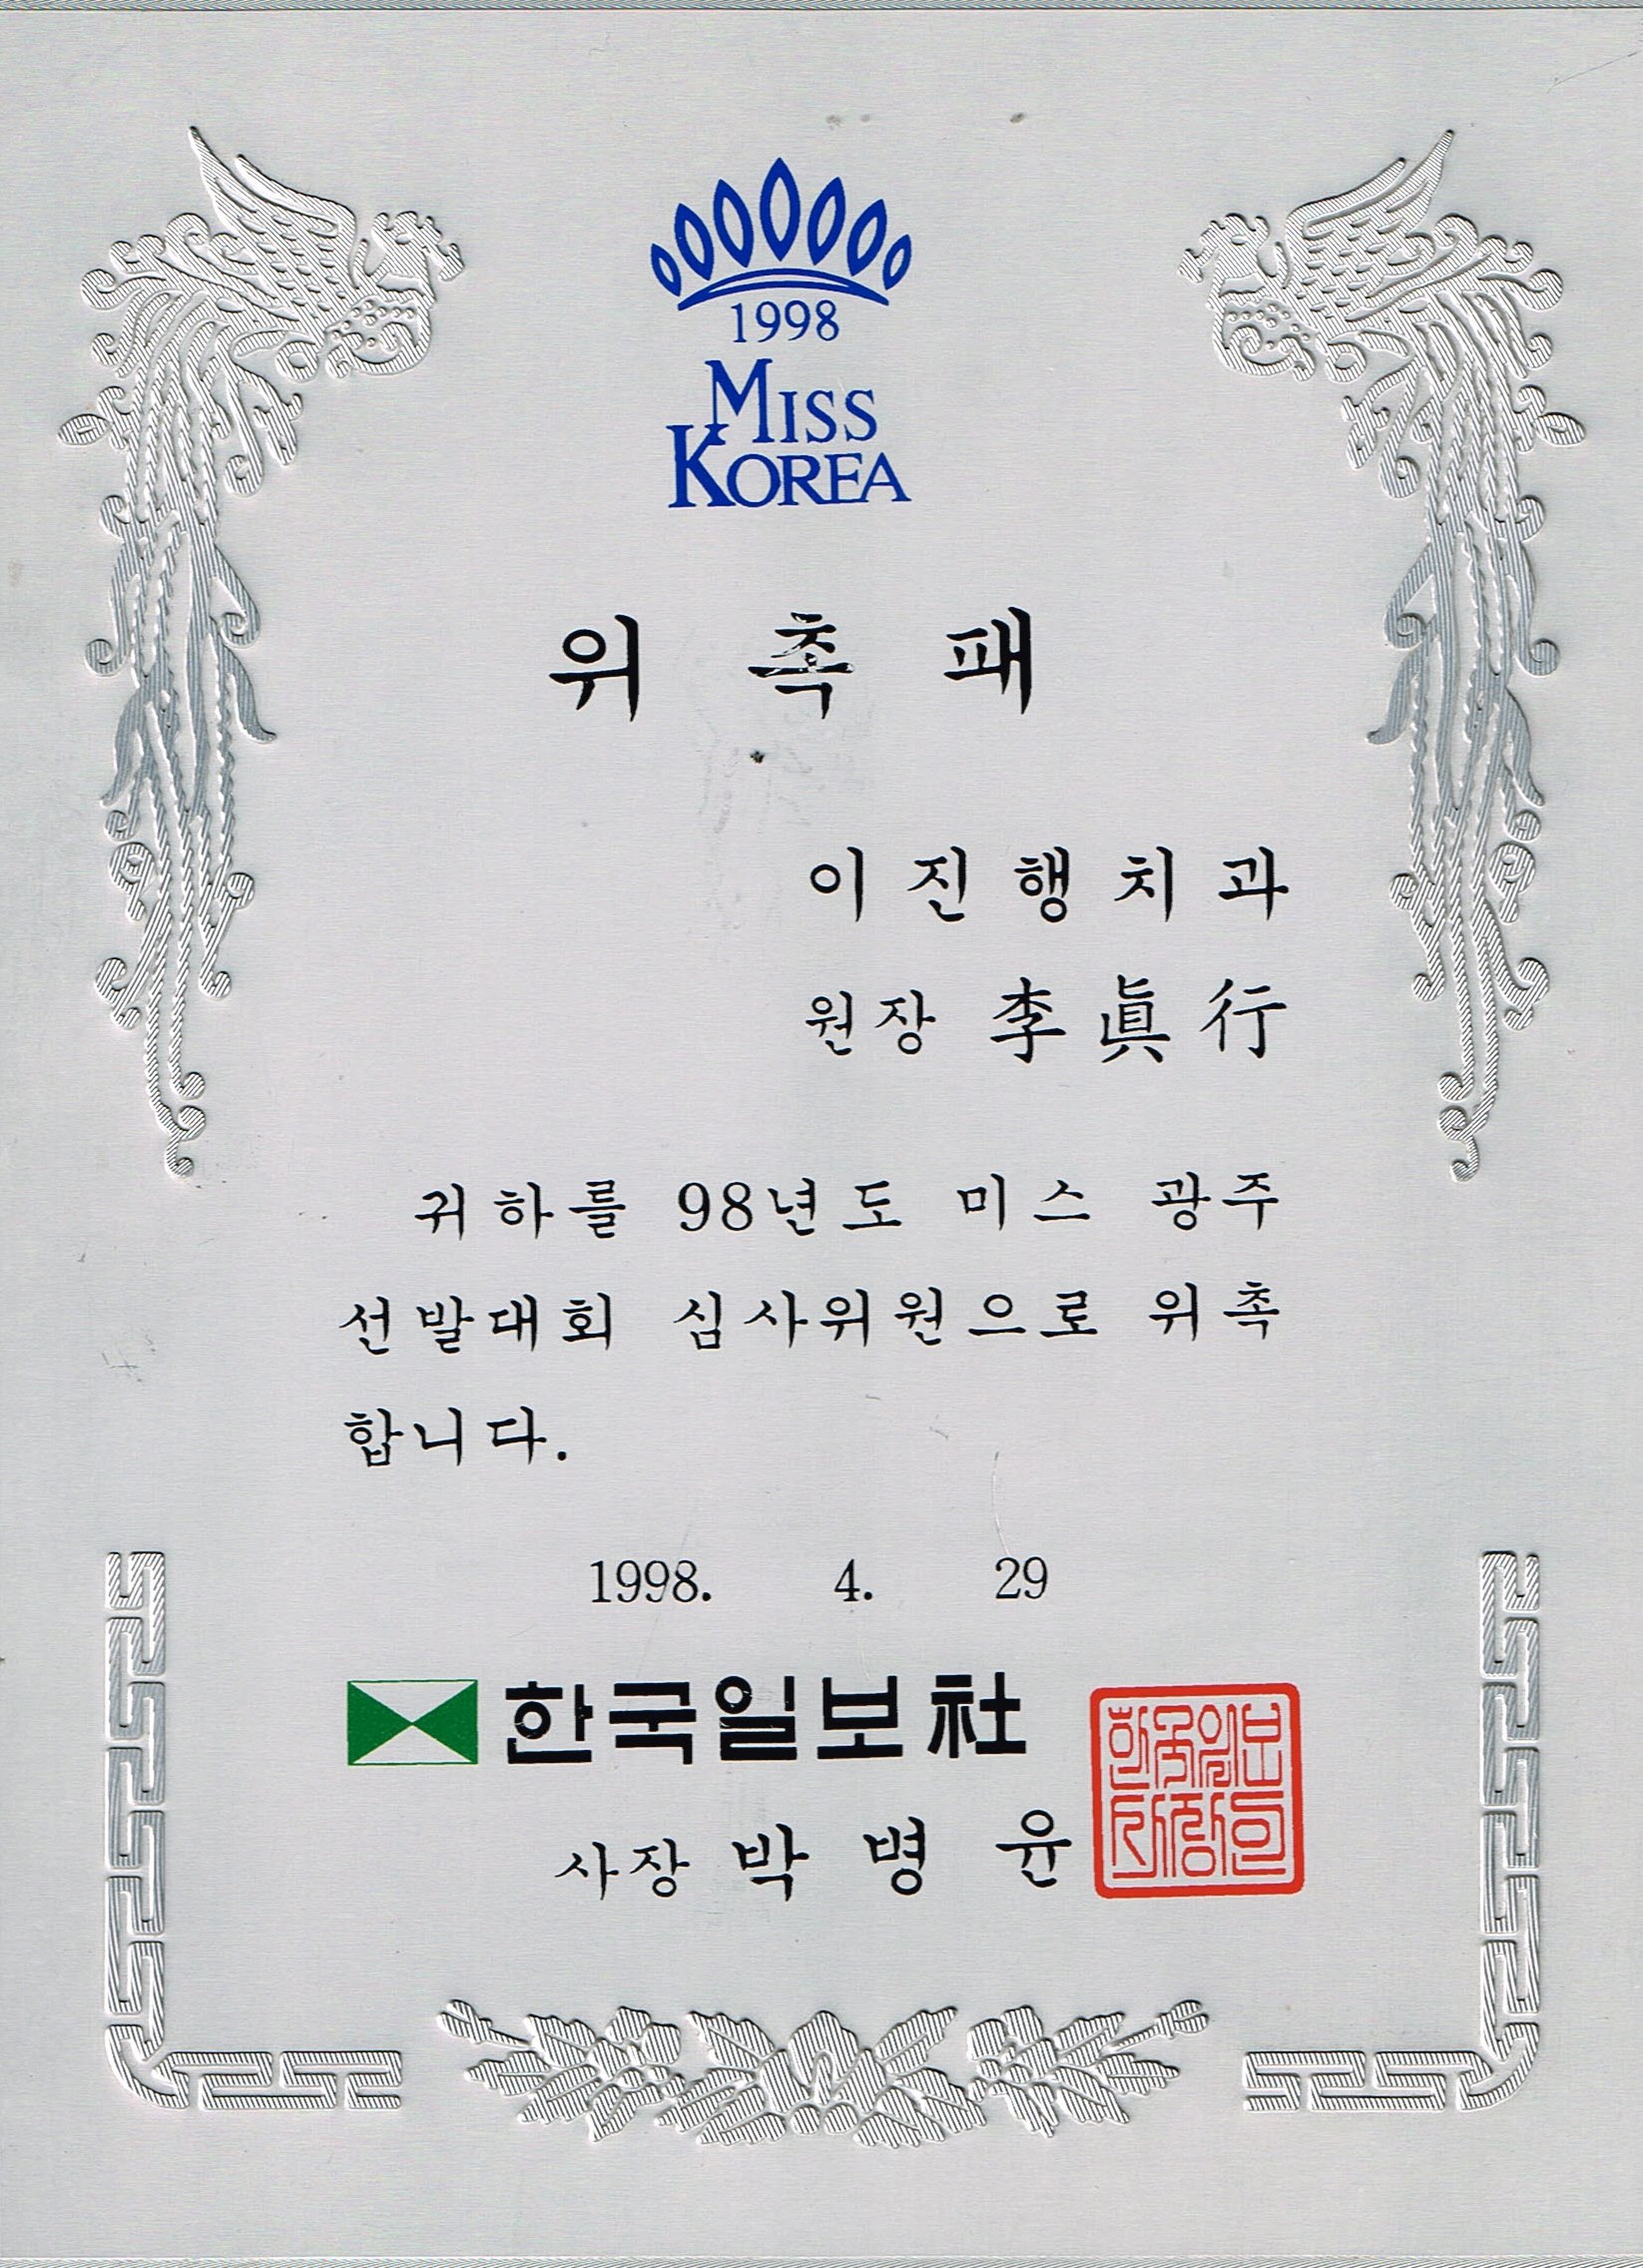 1998
MISS
KOREA
위 촉 패
이진행치과
원장 李眞行
귀하를 98년도 미스 광주
선발대회 심사위원으로 위촉
합니다.
1998. 4. 29
한국일보社
사장 박 병 윤
한국일보
사장인